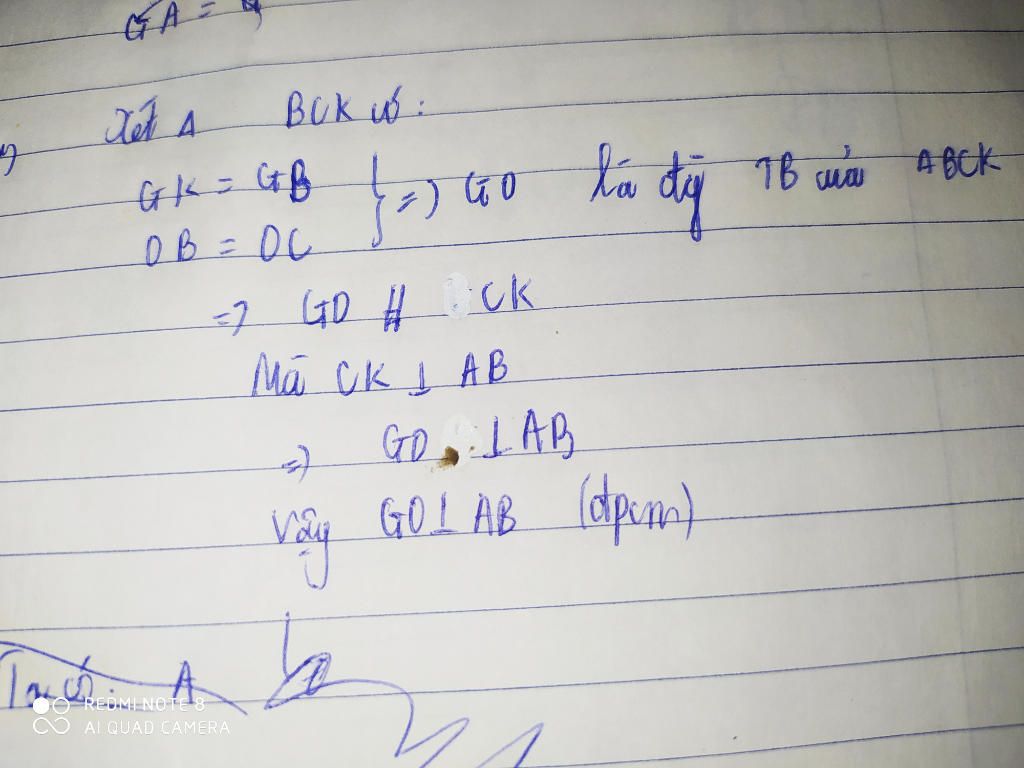 GA =
Xét Δ BCK có:
GK = GB } => GO là đg TB của ΔBCK
OB = OC
=> GO // CK
Mà CK ⊥ AB
=> GO ⊥ AB
Vậy GO ⊥ AB (đpcm)
Ta có: A
REDMI NOTE 8
AI QUAD CAMERA